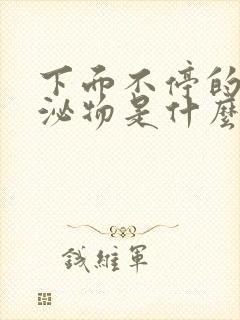 下面不停的
泌物是什麼
钱維軍